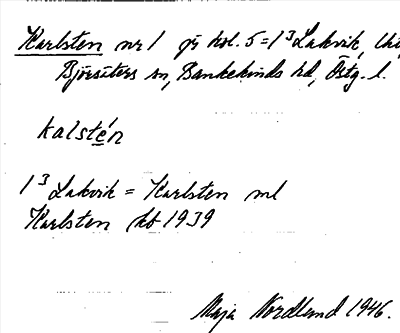 Karlsten nr 1 på kol. 5 = 1³ Lakvik, Utj
Björsäters sn, Bankekinds hd, Östg. l.
kalstén
1³ Lakvik = Karlsten ml
Karlsten kb 1939
Maja Nordlund 1946.